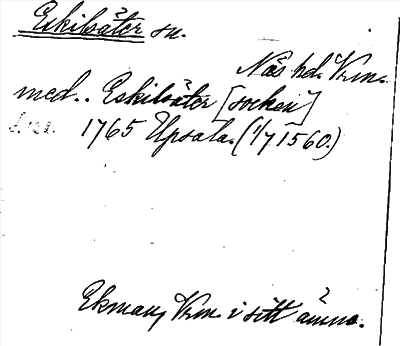 Eskilsäter sn.
Näs hd. Vrm.
med.. Eskilsäter [socken]
1765 Upsala. (1/7 1560.)
Ekman, Vrm. i sitt ämne.